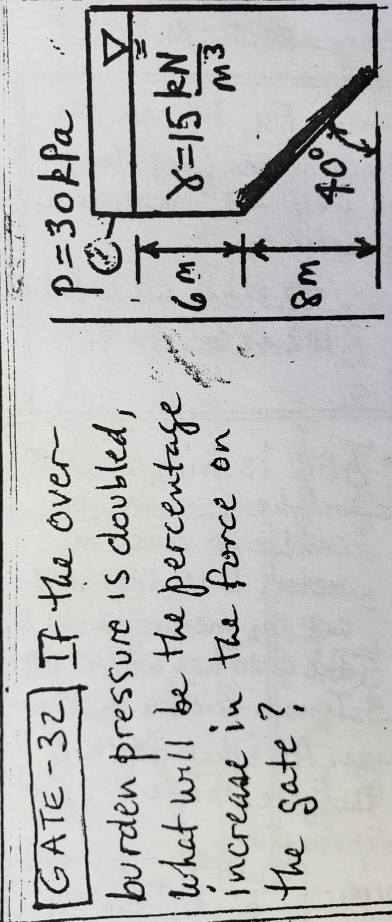 GATE-32 If the over-
burden pressure is doubled,
what will be the percentage
increase in the force on
the gate?
P=30kPa
γ=15 kN/m³
6m
8m
40°